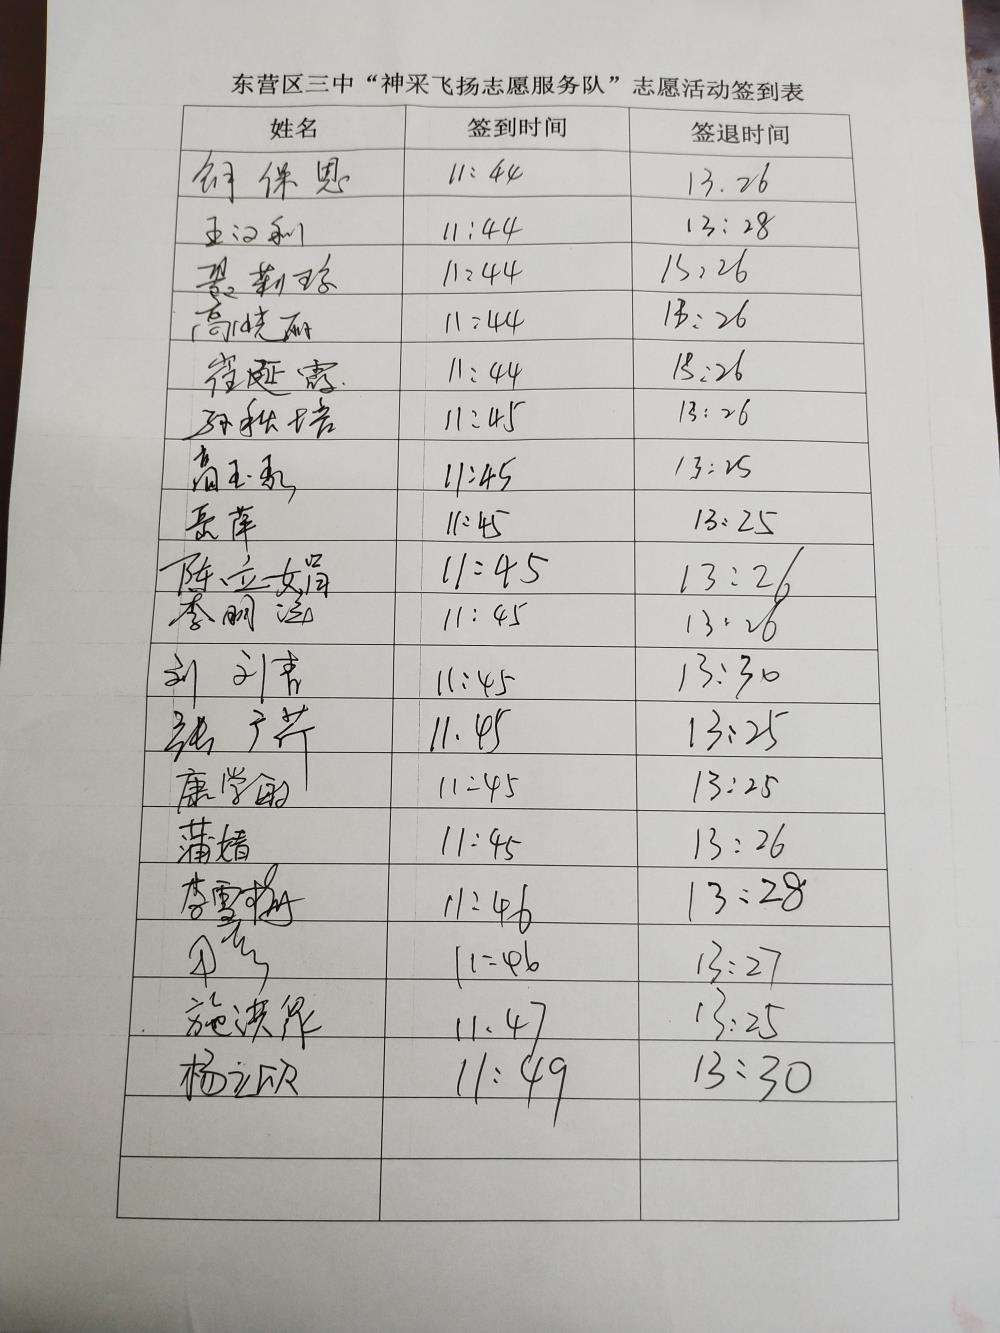 东营区三中“神采飞扬志愿服务队”志愿活动签到表
姓名 签到时间 签退时间
保恩 11:44 13.26
王汉利 11:44 13:28
聂莉 11:44 13:26
高晓丽 11:44 13:26
崔延霞 11:44 13:26
孙秋培 11:45 13:26
高玉 11:45 13:25
岳萍 11:45 13:25
陈立娟 11:45 13:26
李明 11:45 13:26
刘 刘青 11:45 13:30
张广芹 11.45 13:25
康学 11:45 13:25
蒲婧 11:45 13:26
李雪梅 11:46 13:28
11:46 13:27
施洪 11.47 13:25
杨立欣 11:49 13:30